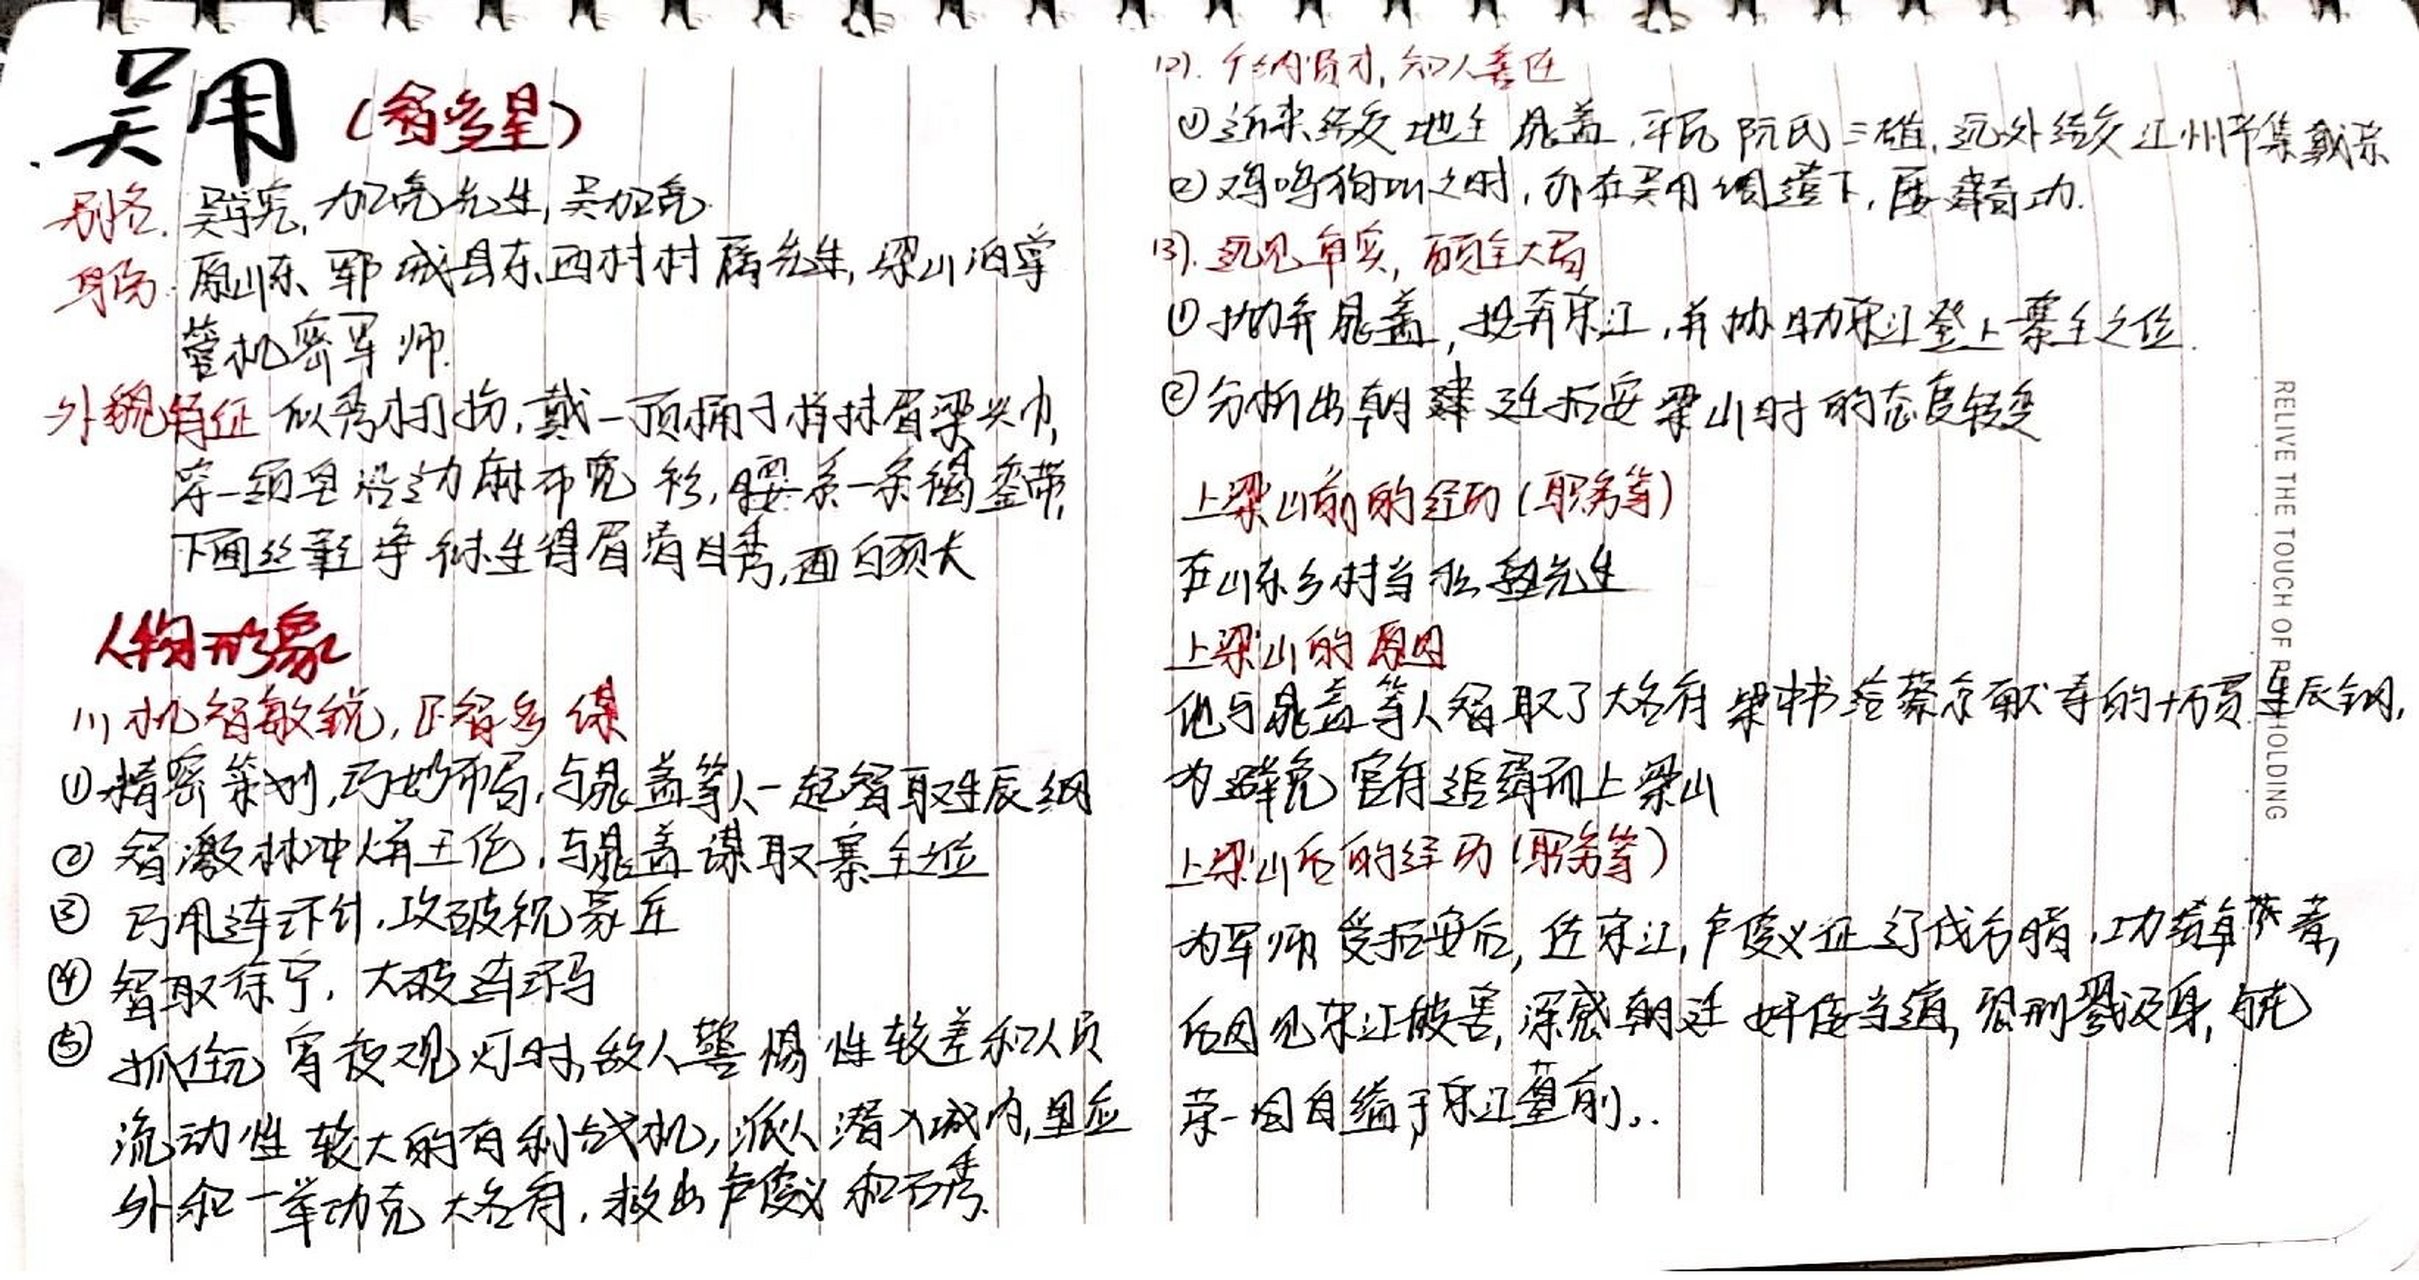 吴用(智多星)
别名. 吴学究,加亮先生,吴加亮.
身份. 原山东郓城县东西村村 先生,梁山泊掌
管机密军师.
外貌特征 似秀才打扮,戴一顶桶子样抹眉梁头巾,
穿一领皂沿边麻布宽衫,腰系一条褐銮带,
下面丝鞋净袜生得眉清目秀,面白须长
人物形象
(1)机智敏锐, 智多谋
①精密策划,巧妙布局,与晁盖等人一起智取生辰纲
②智激林冲火并王伦,与晁盖谋取寨主之位
③巧用连环计,攻破祝家庄
④智取徐宁,大破连环马
⑤抓住元宵夜观灯时,敌人警惕性较差和人员
流动性较大的有利战机,派人潜入城内,里应
外和一举功克大名府,救出卢俊义和石秀.
(2). 贤才,知人善任
①近来结交地主晁盖,平民阮氏三雄,远外结交江州节集戴宗
②鸡鸣狗 之时,亦在吴用调遣下,屡建奇功.
(3).远见卓实,顾全大局
①抛弃晁盖,投奔宋江,并协助宋江登上寨主之位.
②分析出朝 廷招安梁山时的态度转变
上梁山前的经历(职务等)
在山东乡村当私塾先生
上梁山的原因
他与晁盖等人智取了大名府梁中书给蔡京献寿的十万贯生辰纲,
为避免官府追缉而上梁山
上梁山后的经历(职务等)
为军师 受招安后,佐宋江,卢俊义征辽伐方腊,功绩卓著,
后因见宋江被害,深感朝廷奸佞当道,恐刑戮及身,与花
荣一同自缢于宋江墓前..
RELIVE THE TOUCH OF HOLDING